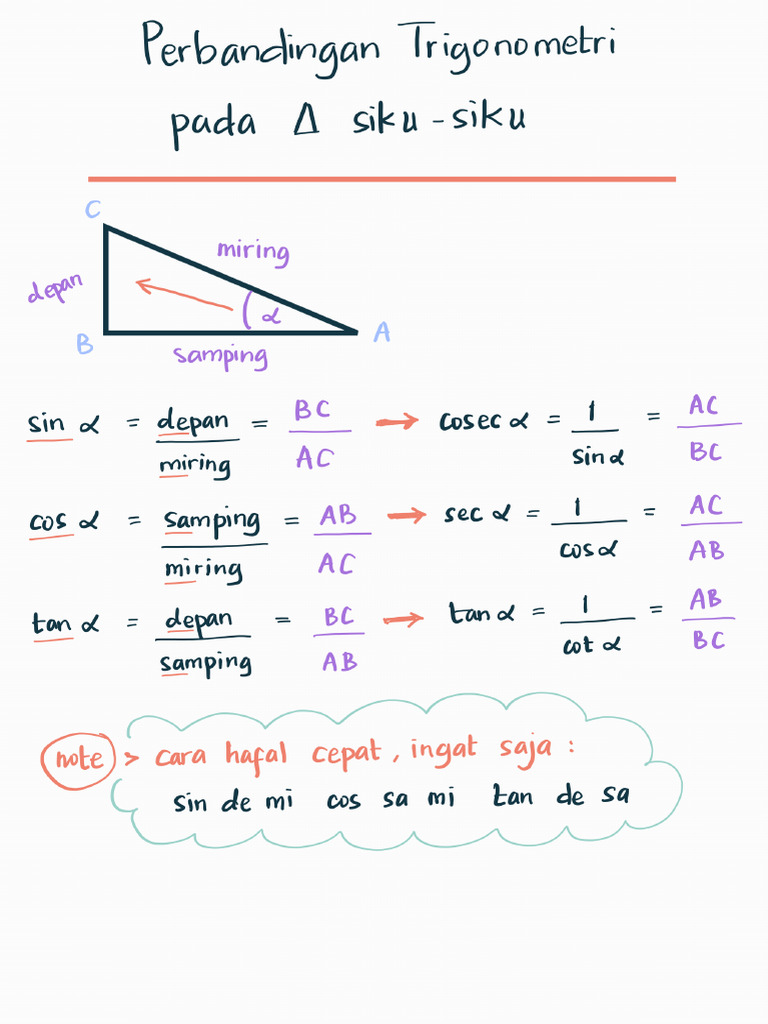 Perbandingan Trigonometri
pada Δ siku-siku
C
miring
depan
α
B
A
samping
sin α = depan/miring = BC/AC → cosec α = 1/sin α = AC/BC
cos α = samping/miring = AB/AC → sec α = 1/cos α = AC/AB
tan α = depan/samping = BC/AB → tan α = 1/cot α = AB/BC
note > cara hafal cepat, ingat saja :
sin de mi cos sa mi tan de sa